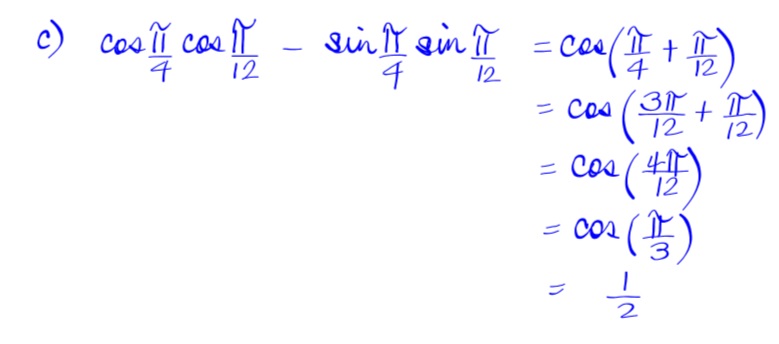 c) cos π/4 cos π/12 − sin π/4 sin π/12 = cos(π/4 + π/12)
= cos(3π/12 + π/12)
= cos(4π/12)
= cos(π/3)
= 1/2